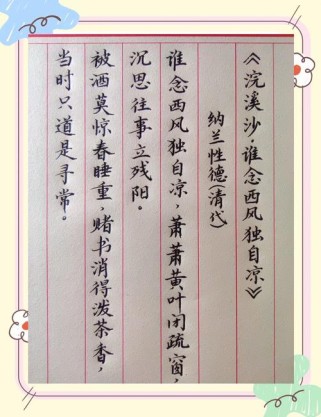 《浣溪沙·谁念西风独自凉》
纳兰性德(清代)
谁念西风独自凉,萧萧黄叶闭疏窗,
沉思往事立残阳。
被酒莫惊春睡重,赌书消得泼茶香,
当时只道是寻常。